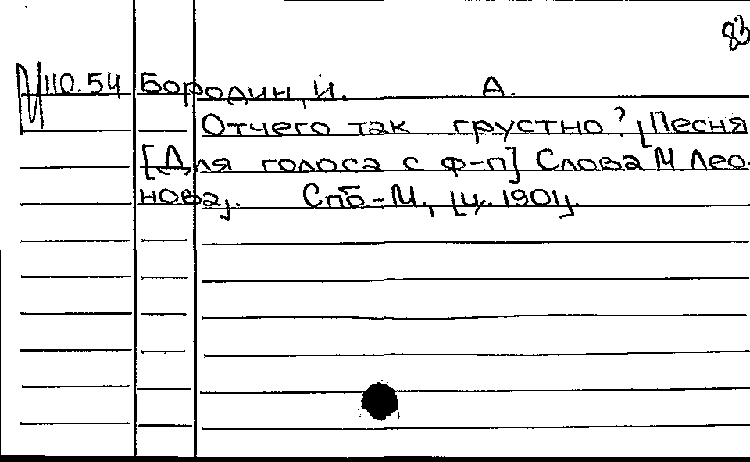 83
110.54 Бородин, И. А.
Отчего так грустно? [Песня
[Для голоса с ф-п] Слова М Лео-
нова]. Спб-М., [ц. 1901].